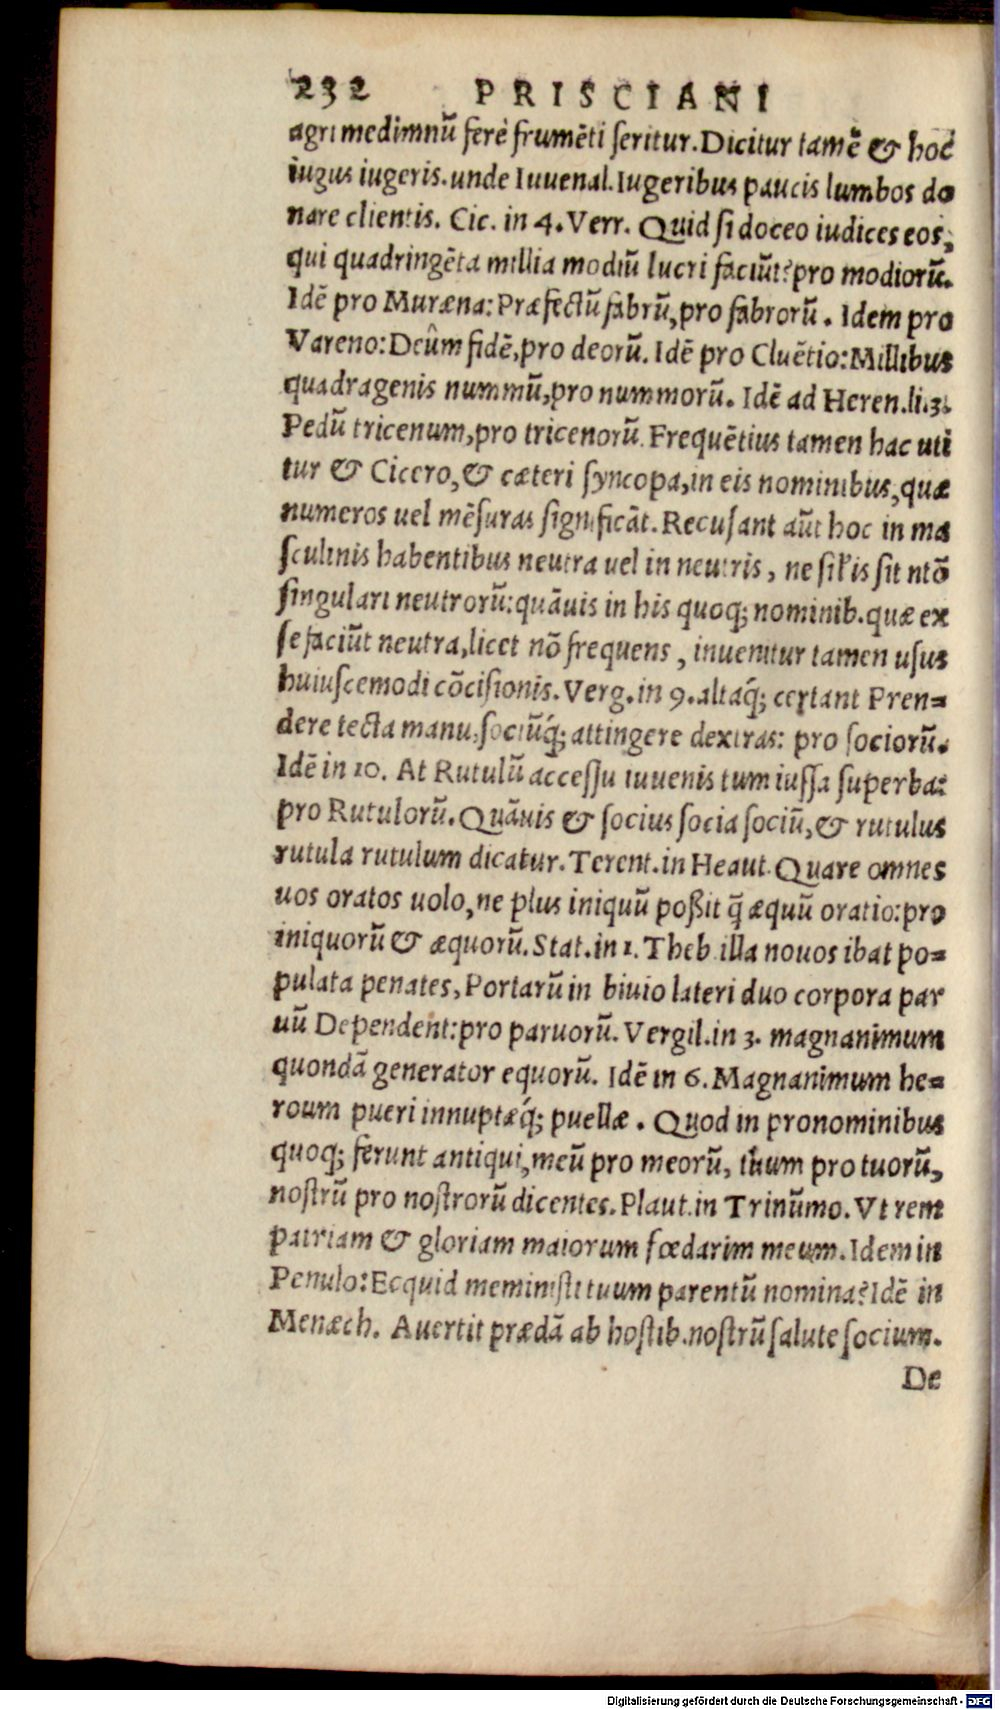 232 PRISCIANI
agri medimnũ ferè frumẽti ſeritur. Dicitur tamẽ & hoc
iugus iugeris. unde Iuuenal. Iugeribus paucis lumbos do
nare clientis. Cic. in 4. Verr. Quid ſi doceo iudices eos,
qui quadringẽta millia modiũ lucri faciũt? pro modiorũ.
Idẽ pro Muræna: Præfectũ fabrũ, pro fabrorũ. Idem pro
Vareno: Deûm fidẽ, pro deorũ. Idẽ pro Cluẽtio: Millibus
quadragenis nummũ, pro nummorũ. Idẽ ad Heren. li. 3.
Pedũ tricenum, pro tricenorũ. Frequẽtius tamen hac uti
tur & Cicero, & cæteri ſyncopa, in eis nominibus, quæ
numeros uel mẽſuras ſignificãt. Recuſant aũt hoc in ma
ſculinis habentibus neutra uel in neutris, ne ſił'is ſit ntõ
ſingulari neutrorũ: quãuis in his quoq; nominib. quæ ex
ſe faciũt neutra, licet nõ frequens, inuenitur tamen uſus
huiuſcemodi cõciſionis. Verg. in 9. altaq́; certant Pren=
dere tecta manu, ſociũq́; attingere dextras: pro ſociorũ.
Idẽ in 10. At Rutulũ acceſſu iuuenis tum iuſſa ſuperba:
pro Rutulorũ. Quãuis & ſocius ſocia ſociũ, & rutulus
rutula rutulum dicatur. Terent. in Heaut. Quare omnes
uos oratos uolo, ne plus iniquũ poßit q̃ æquũ oratio: pro
iniquorũ & æquorũ. Stat. in 1. Theb. illa nouos ibat po=
pulata penates, Portarũ in biuio lateri duo corpora par
uũ Dependent: pro paruorũ. Vergil. in 3. magnanimum
quondã generator equorũ. Idẽ in 6. Magnanimum he=
roum pueri innuptæq́; puellæ. Quod in pronominibus
quoq; ferunt antiqui, meũ pro meorũ, tuum pro tuorũ,
noſtrũ pro noſtrorũ dicentes. Plaut. in Trinũmo. Vt rem
patriam & gloriam maiorum fœdarim meum. Idem in
Penulo: Ecquid meminiſti tuum parentũ nomina? Idẽ in
Menæch. Auertit prædã ab hoſtib. noſtrũ ſalute ſocium.
De
Digitalisierung gefördert durch die Deutsche Forschungsgemeinschaft - DFG